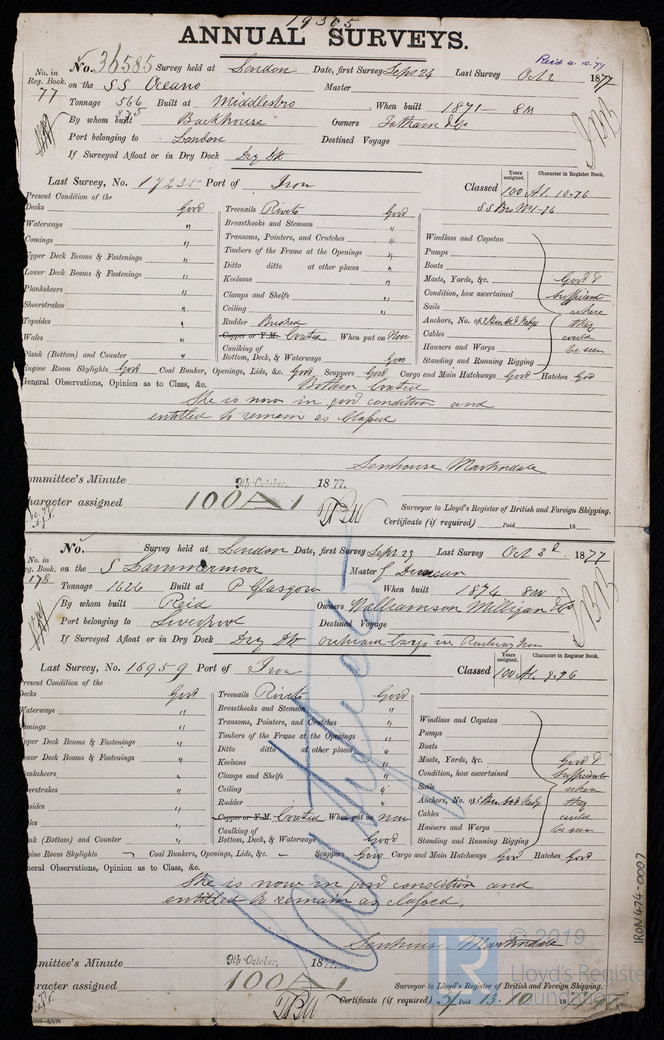 19305
ANNUAL SURVEYS.
Paid 4.10.77
No. in Reg. Book. No. 36585 Survey held at London Date, first Survey Sept 26 Last Survey Oct 2 1877
77 on the SS Oceano Master
Tonnage 566 Built at Middlesbro When built 1871 - 8m
375
By whom built Backhouse Owners Tatham & Co
Port belonging to London Destined Voyage
If Surveyed Afloat or in Dry Dock Dry Dk
Last Survey, No. 17235 Port of Iron Classed
Years assigned. Character in Register Book.
100 A1. 10.76
Present Condition of the
Decks Good
Waterways "
Comings "
Upper Deck Beams & Fastenings "
Lower Deck Beams & Fastenings "
Planksheers "
Sheerstrakes "
Topsides "
Wales "
Plank (Bottom) and Counter "
Treenails Rivets Good
Breasthooks and Stemson "
Transoms, Pointers, and Crutches "
Timbers of the Frame at the Openings "
Ditto ditto at other places "
Keelsons "
Clamps and Shelfs "
Ceiling "
Rudder
Copper or Y.M. Coated When put on Now
Caulking of Bottom, Deck, & Waterways Good
Windlass and Capstan
Pumps
Boats
Masts, Yards, &c. Good &
Condition, how ascertained sufficient
Sails where
Anchors, No. of they
Cables could
Hausers and Warps be seen
Standing and Running Rigging
Engine Room Skylights Good Coal Bunkers, Openings, Lids, &c. Good Scuppers Good Cargo and Main Hatchways Good Hatches Good
General Observations, Opinion as to Class, &c. Bottom Coated
She is now in good condition and
entitled to remain as Classed
Senhouse Martindale
Committee's Minute 9th October, 1877.
Character assigned 100 A 1
Surveyor to Lloyd's Register of British and Foreign Shipping.
Certificate (if required) Paid 18
No. in Reg. Book. No. Survey held at London Date, first Survey Sept 29 Last Survey Oct 3d 1877
178 on the S Lammermoor Master J Duncan
Tonnage 1626 Built at P Glasgow When built 1874 8m
By whom built Reid Owners Williamson Milligan & Co
Port belonging to Liverpool Destined Voyage
If Surveyed Afloat or in Dry Dock Dry Dk
Last Survey, No. 16959 Port of Iron Classed
Years assigned. Character in Register Book.
100 A1. 8.76
Present Condition of the
Decks Good
Waterways "
Comings "
Upper Deck Beams & Fastenings "
Lower Deck Beams & Fastenings "
Planksheers "
Sheerstrakes "
Topsides "
Wales "
Plank (Bottom) and Counter "
Treenails Rivets Good
Breasthooks and Stemson "
Transoms, Pointers, and Crutches "
Timbers of the Frame at the Openings "
Ditto ditto at other places "
Keelsons "
Clamps and Shelfs "
Ceiling "
Rudder "
Copper or Y.M. Coated When put on now
Caulking of Bottom, Deck, & Waterways Good
Windlass and Capstan
Pumps
Boats
Masts, Yards, &c. Good &
Condition, how ascertained sufficient
Sails where
Anchors, No. of they
Cables could
Hausers and Warps be seen
Standing and Running Rigging
Engine Room Skylights - Coal Bunkers, Openings, Lids, &c. - Scuppers Good Cargo and Main Hatchways Good Hatches Good
General Observations, Opinion as to Class, &c.
She is now in good condition and
entitled to remain as classed.
Senhouse Martindale
Committee's Minute 9th October, 1877.
Character assigned 100 A 1
Surveyor to Lloyd's Register of British and Foreign Shipping.
Certificate (if required) 5/ Paid 13.10 1877
IRON474-0007
© 2019
Lloyd's Register
Foundation